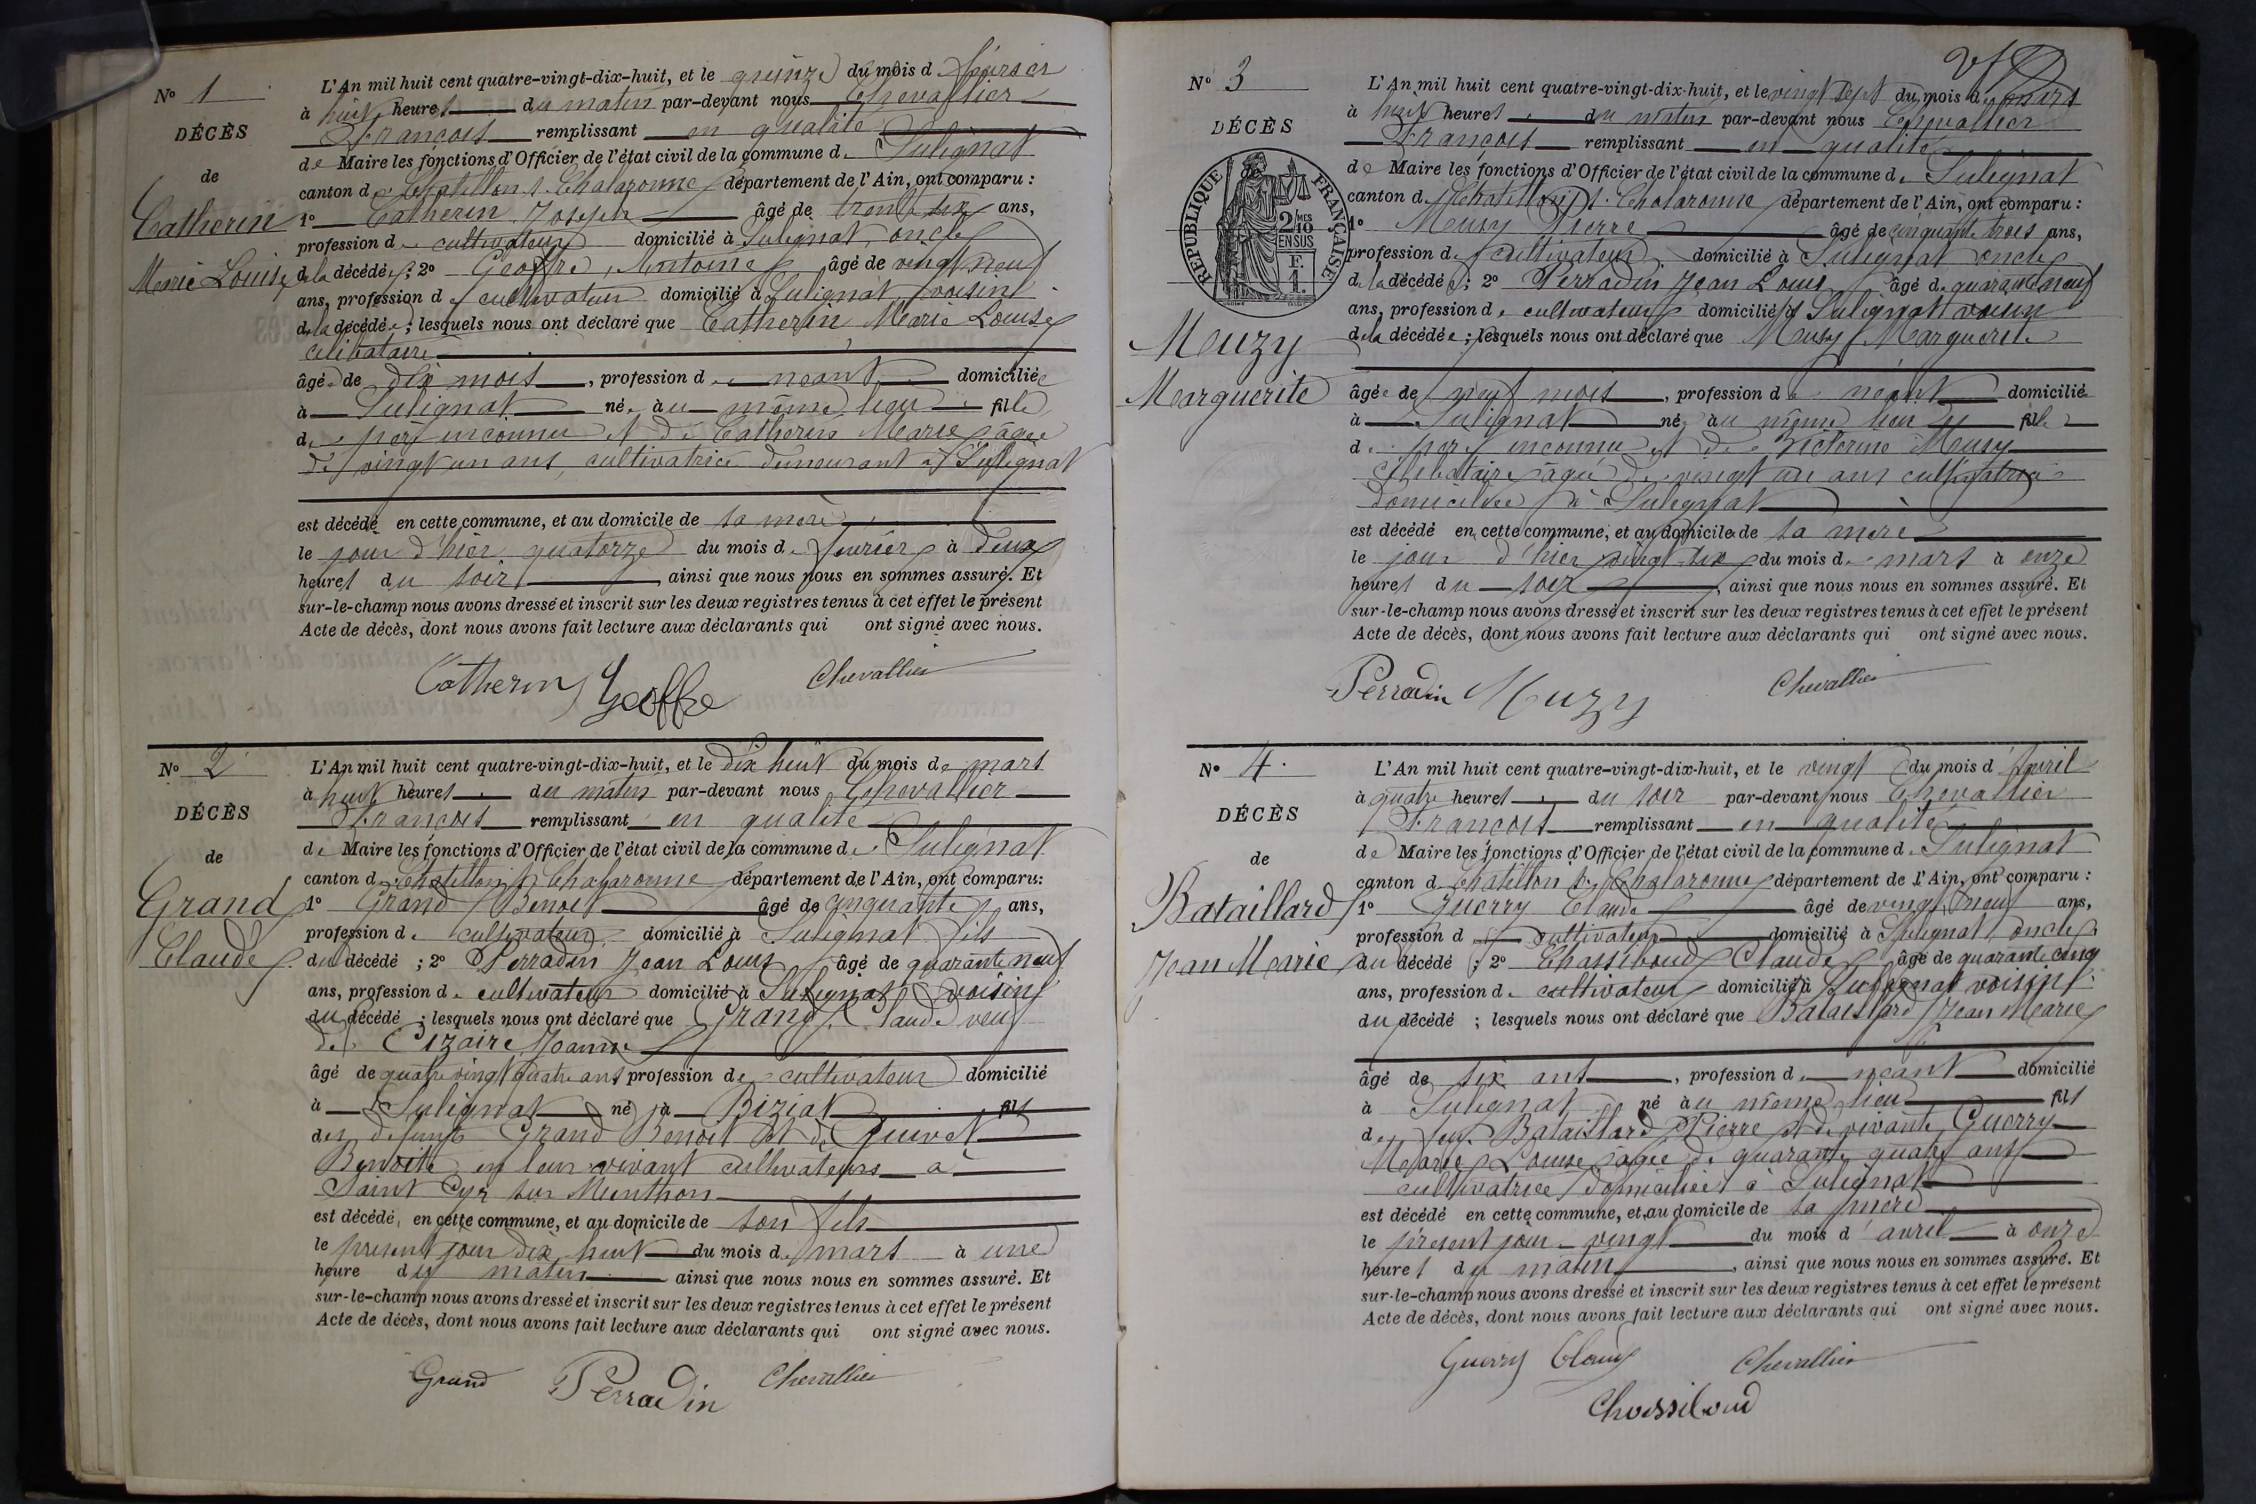 N° 1
DÉCÈS
de
Catherin
Marie Louise
L'An mil huit cent quatre-vingt-dix-huit, et le quinze du mois d février
à huit heures du matin par-devant nous Chevallier
François remplissant en qualité
de Maire les fonctions d'Officier de l'état civil de la commune de Sulignat
canton de Chatillon s. Chalaronne département de l'Ain, ont comparu :
1° Catherin Joseph âgé de trente six ans,
profession de cultivateur domicilié à Sulignat, oncle
de la décédée ; 2° Geoffre, Antoine âgé de vingt neuf
ans, profession de cultivateur domicilié à Sulignat, voisin
de la décédée ; lesquels nous ont déclaré que Catherin Marie Louise
célibataire
âgée de dix mois, profession de néant domiciliée
à Sulignat née au même lieu fille
de père inconnu et de Catherin Marie âgée
de vingt un ans, cultivatrice demeurant à Sulignat
est décédé en cette commune, et au domicile de sa mère
le jour d'hier quatorze du mois de février à deux
heures du soir, ainsi que nous nous en sommes assuré. Et
sur-le-champ nous avons dressé et inscrit sur les deux registres tenus à cet effet le présent
Acte de décès, dont nous avons fait lecture aux déclarants qui ont signé avec nous.
Catherin Geoffre Chevallier
N° 2
DÉCÈS
de
Grand
Claude
L'An mil huit cent quatre-vingt-dix-huit, et le dix huit du mois de mars
à huit heures du matin par-devant nous Chevallier
François remplissant en qualité
de Maire les fonctions d'Officier de l'état civil de la commune de Sulignat
canton de Chatillon s. Chalaronne département de l'Ain, ont comparu :
1° Grand Benoit âgé de cinquante ans,
profession de cultivateur domicilié à Sulignat fils
du décédé ; 2° Perradin Jean Louis âgé de quarante neuf
ans, profession de cultivateur domicilié à Sulignat voisin
du décédé ; lesquels nous ont déclaré que Grand Claude veuf
de Cizaire Jeanne
âgé de quatre vingt quatre ans profession de cultivateur domicilié
à Sulignat né à Biziat fils
des défunts Grand Benoit et de Guivet
Benoite en leur vivant cultivateurs à
Saint Cyr sur Menthon
est décédé, en cette commune, et au domicile de son fils
le présent jour dix huit du mois de mars à une
heure du matin ainsi que nous nous en sommes assuré. Et
sur-le-champ nous avons dressé et inscrit sur les deux registres tenus à cet effet le présent
Acte de décès, dont nous avons fait lecture aux déclarants qui ont signé avec nous.
Grand Perradin Chevallier
N° 3
DÉCÈS
RÉPUBLIQUE FRANÇAISE
2/10MES
EN SUS
F.
1.
Meuzy
Marguerite
L'An mil huit cent quatre-vingt-dix-huit, et le vingt sept du mois de mars
à huit heures du matin par-devant nous Chevallier
François remplissant en qualité
de Maire les fonctions d'Officier de l'état civil de la commune de Sulignat
canton de Chatillon s. Chalaronne département de l'Ain, ont comparu :
1° Meuzy Pierre âgé de cinquante trois ans,
profession de cultivateur domicilié à Sulignat oncle
de la décédée ; 2° Perradin Jean Louis âgé de quarante neuf
ans, profession de cultivateur domicilié à Sulignat voisin
de la décédée ; lesquels nous ont déclaré que Meuzy Marguerite
âgée de neuf mois, profession de néant domiciliée
à Sulignat née au même lieu fille
de père inconnu et de Victorine Meuzy
célibataire âgée de vingt un ans cultivatrice
domiciliée à Sulignat
est décédé en cette commune, et au domicile de sa mère
le jour d'hier vingt six du mois de mars à onze
heures du soir, ainsi que nous nous en sommes assuré. Et
sur-le-champ nous avons dressé et inscrit sur les deux registres tenus à cet effet le présent
Acte de décès, dont nous avons fait lecture aux déclarants qui ont signé avec nous.
Perradin Muzy Chevallier
N° 4.
DÉCÈS
de
Bataillard
Jean Marie
L'An mil huit cent quatre-vingt-dix-huit, et le vingt du mois d'Avril
à quatre heures du soir par-devant nous Chevallier
François remplissant en qualité
de Maire les fonctions d'Officier de l'état civil de la commune de Sulignat
canton de Chatillon s. Chalaronne département de l'Ain, ont comparu :
1° Guerry Claude âgé de vingt neuf ans,
profession de cultivateur domicilié à Sulignat, oncle
du décédé ; 2° Chassiboud Claude âgé de quarante cinq
ans, profession de cultivateur domicilié à Sulignat voisin
du décédé ; lesquels nous ont déclaré que Bataillard Jean Marie
âgé de six ans, profession de néant domicilié
à Sulignat né au même lieu fils
de feu Bataillard Pierre et de vivante Guerry
Marie Louise âgée de quarante quatre ans
cultivatrice domiciliée à Sulignat
est décédé en cette commune, et au domicile de sa mère
le présent jour vingt du mois d'avril à onze
heures du matin, ainsi que nous nous en sommes assuré. Et
sur-le-champ nous avons dressé et inscrit sur les deux registres tenus à cet effet le présent
Acte de décès, dont nous avons fait lecture aux déclarants qui ont signé avec nous.
Guerry Claude Chevallier
Chassiboud